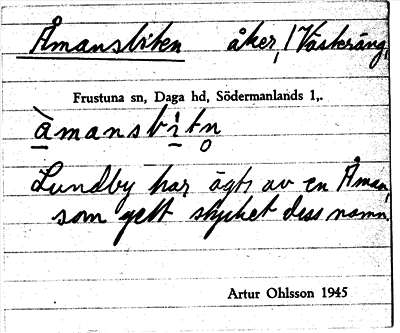 Åmansbiten åker, i Väsleräng,
Frustuna sn, Daga hd, Södermanlands l,.
àmansbitn
Lundby har ägts av en Åman,
som gett stycket dess namn.
Artur Ohlsson 1945